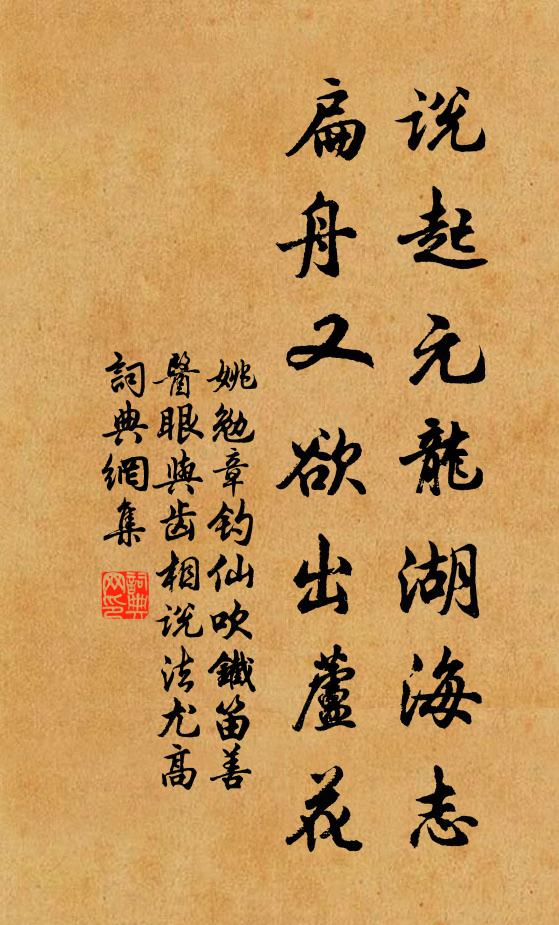 説起元龍湖海志
扁舟又欲出蘆花
姚勉章釣仙吹鐵笛善
醫眼與齒相説法尤高
詞典網集
詞典
网印